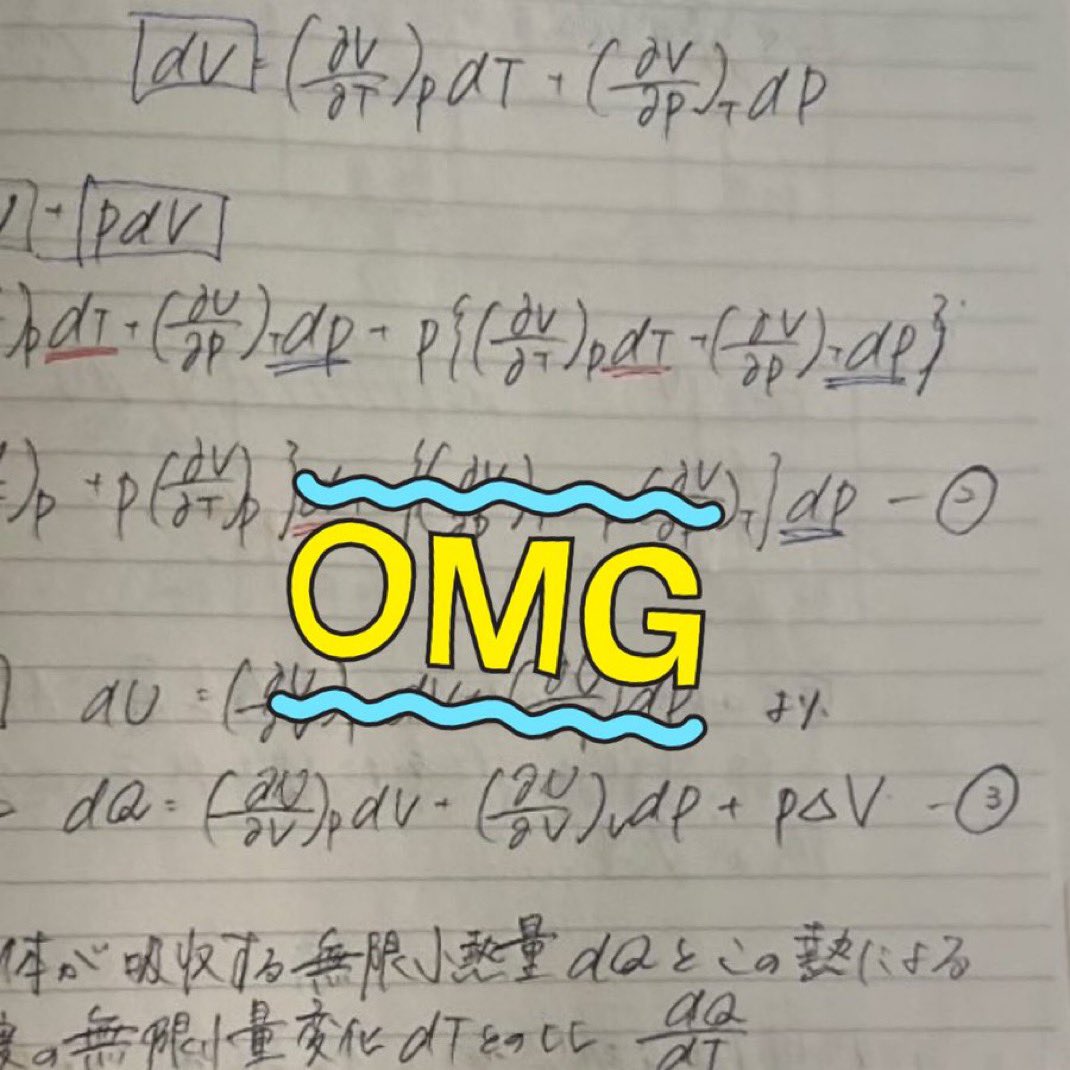 dV = (∂V/∂T)_P dT + (∂V/∂P)_T dP
+ PdV
)_P dT + (∂U/∂P)_T dP + P{(∂V/∂T)_P dT + (∂V/∂P)_T dP}
)_P + P(∂V/∂T)_P } {( )_T (∂V/∂P)_T} dP - ②
OMG
dU = ( より
dQ = (∂U/∂V)_P dV + (∂U/∂V)_V dP + PΔV - ③
体が吸収する無限小熱量 dQ とこの熱による
度の無限小量変化 dT との比 dQ/dT